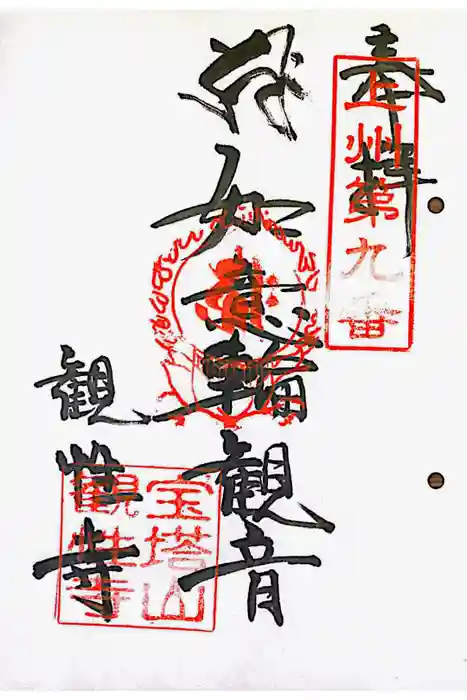 奉拝
上州第九番
如意輪観音
観性寺
宝塔山
観性寺